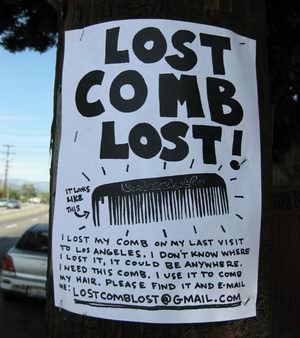 LOST
COMB
LOST!
IT LOOKS
LIKE
THIS
I LOST MY COMB ON MY LAST VISIT
TO LOS ANGELES. I DON'T KNOW WHERE
I LOST IT, IT COULD BE ANYWHERE.
I NEED THIS COMB, I USE IT TO COMB
MY HAIR. PLEASE FIND IT AND E-MAIL
ME: LOSTCOMBLOST@GMAIL.COM